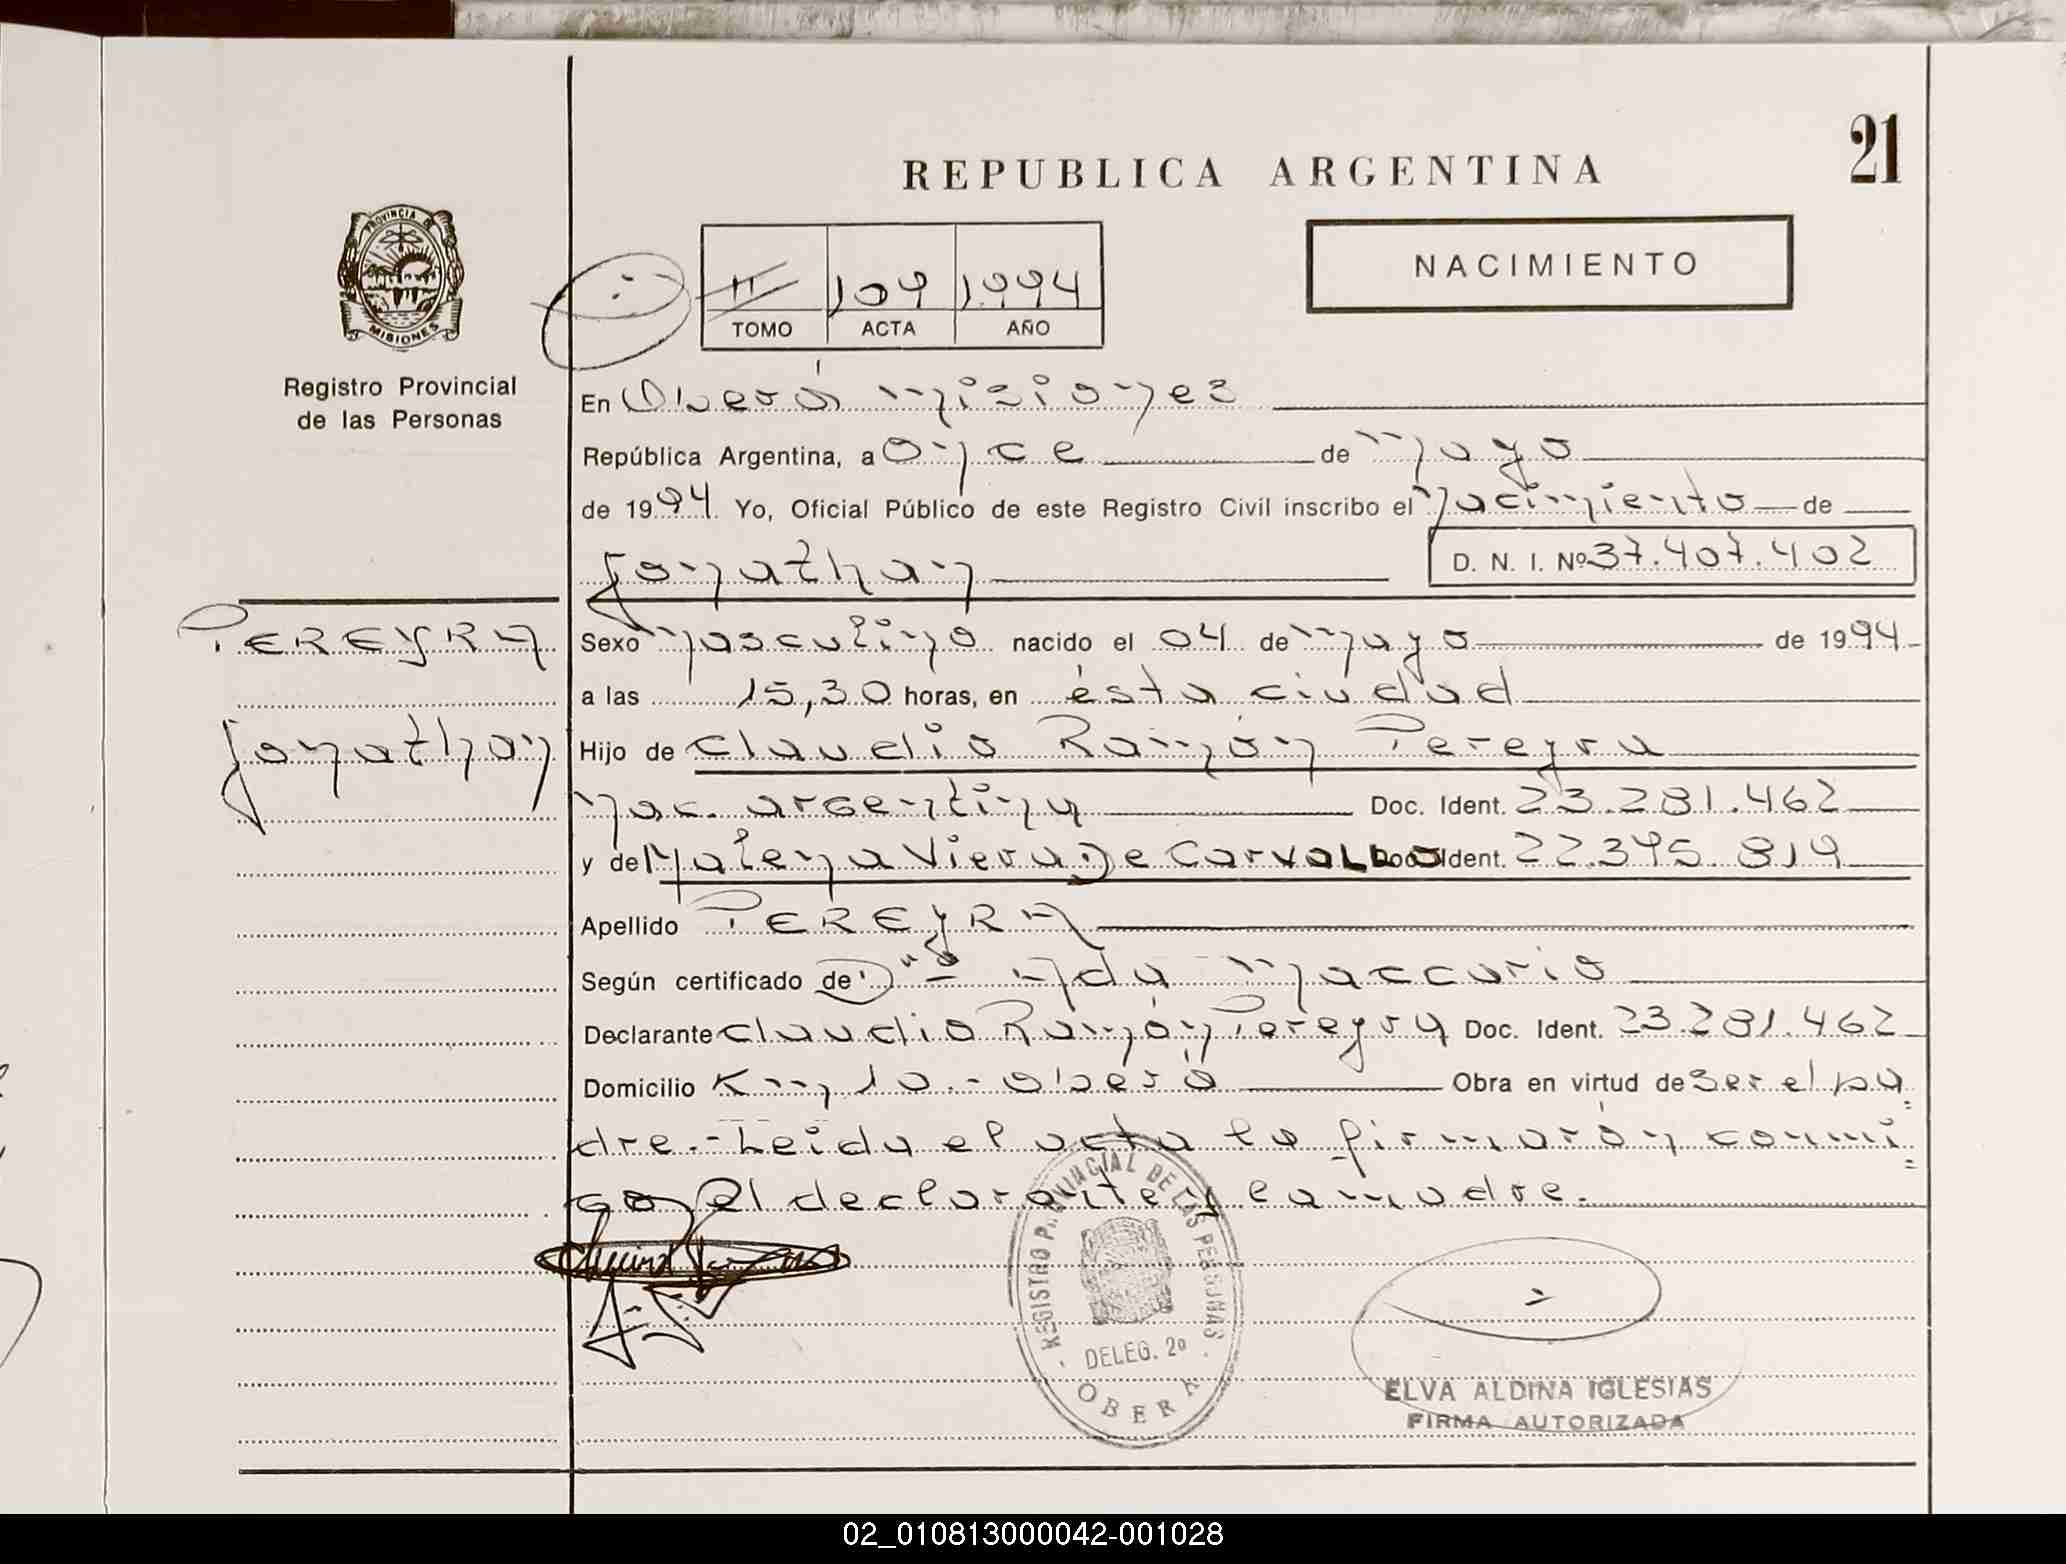 21
REPUBLICA ARGENTINA
PROVINCIA DE
MISIONES
NACIMIENTO
II 109 1994
TOMO ACTA AÑO
Registro Provincial
de las Personas
En Oberá Misiones
República Argentina, a once de Mayo
de 1994 Yo, Oficial Público de este Registro Civil inscribo el Nacimiento de
Jonathan D. N. I. Nº 37.407.402
PEREYRA
Jonathan
Sexo Masculino nacido el 04 de Mayo de 1994
a las 15,30 horas, en ésta ciudad
Hijo de Claudio Ramón Pereyra
Nac. argentina Doc. Ident. 23.281.462
y de Malena Viera De Carvallo Doc. Ident. 22.395.819
Apellido PEREYRA
Según certificado de Ada Maccario
Declarante Claudio Ramón Pereyra Doc. Ident. 23.281.462
Domicilio Km 10.- Oberá Obra en virtud de ser el pa
dre.- Leida el acta la firmarón conmi
go el declarante y la madre.
REGISTRO PROVINCIAL DE LAS PERSONAS
DELEG. 2º
OBERA
ELVA ALDINA IGLESIAS
FIRMA AUTORIZADA
02_010813000042-001028